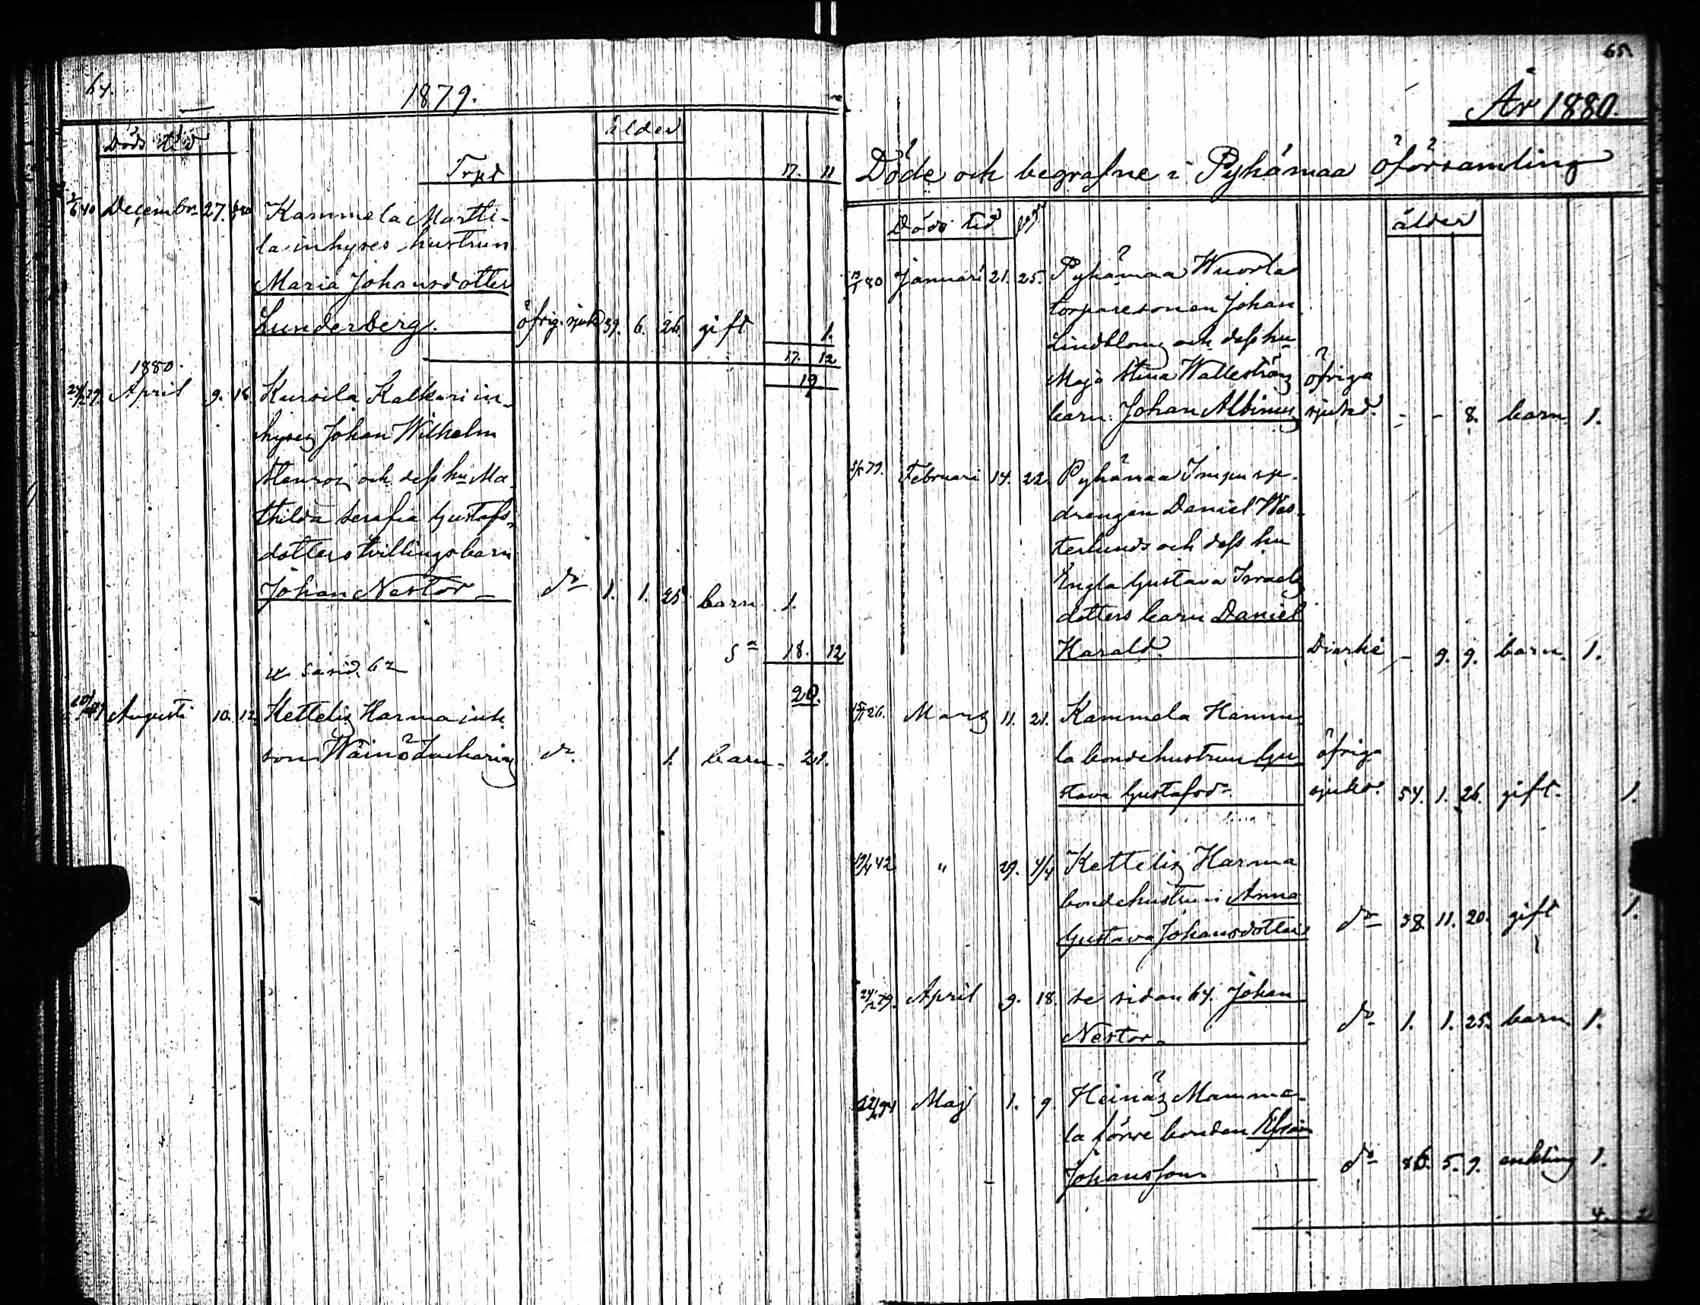 64.
1879.
Döds tid
ålder
Trpt 17. 11
December 27. Kammela Martti-
la inhyres hustrun
Maria Johansdotter
Lunderberg. öfrig. sjukd 39. 6. 26. gift 1.
17. 12
19
1880.
April 9. 18 Kursila Kalkari in-
hyses Johan Wilhelm
och dess hu Ma-
thilda Serafia Gustafs-
dotters tvillingsbarn
Johan Nestor do 1. 1. 25 barn 1.
Sa 18. 12
20.
Augusti 10. 12. Kettelis Harma inh.
son Wäinö Zacharias do. 1. barn 21.
65.
År 1880.
Döde och begrafne i Pyhämaa öförsamling
Döds tid
ålder
Januari 21. 25. Pyhämaa Wuorla
torparesonen Johan
Lindblom och dess hu
Maja Stina Wallström öfriga
barn: Johan Albinus sjukd. - - 8. barn 1.
Februari 14. 22 Pyhämaa
drengen Daniel Wes-
terlunds och dess hu
Engla Gustava Israels
dotters barn Daniel
Harald. Diarhé - 9. 9. barn. 1.
Mars 11. 21. Kammela Hannu
la bondehustrun Gu öfriga
stava Gustafsdr. sjukd. 54. 1. 26. gift. 1.
" 29. 4/4 Kettelis Harma
bondehustrun Anna
Gustava Johansdotter do 38. 11. 20. gift 1.
April 9. 18. se sidan 64. Johan
Nestor. do 1. 1. 25. barn 1.
Maj 1. 9. Heinäs Mamma-
la förre bonden Efraim
Johansson do 86. 5. 9. enkling 1.
4. 2